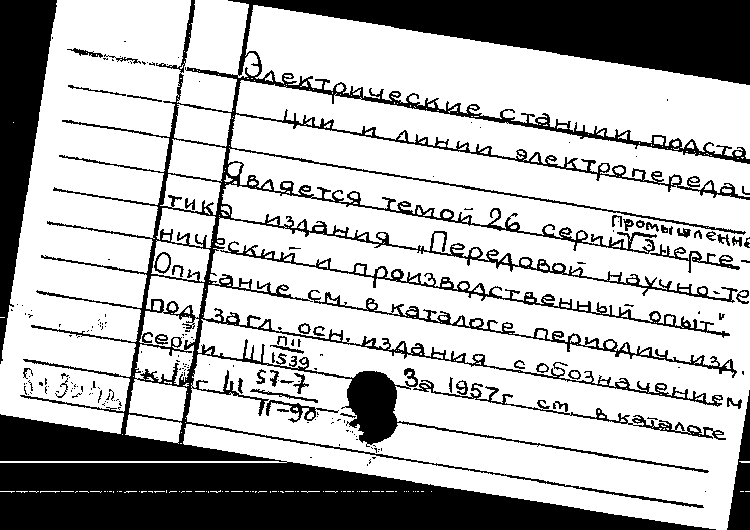 Электрические станции, подста
ции и линии электропередач
Является темой 26 серии
Промышленна
Энерге-
тика издания „Передовой научно-те
нический и производственный опыт".
Описание см. в каталоге периодич. изд.
под загл. осн. издания с обозначением
серии. Ш ПII/1539. За 1957г см. в каталоге
книг Ш 57-7/II-90